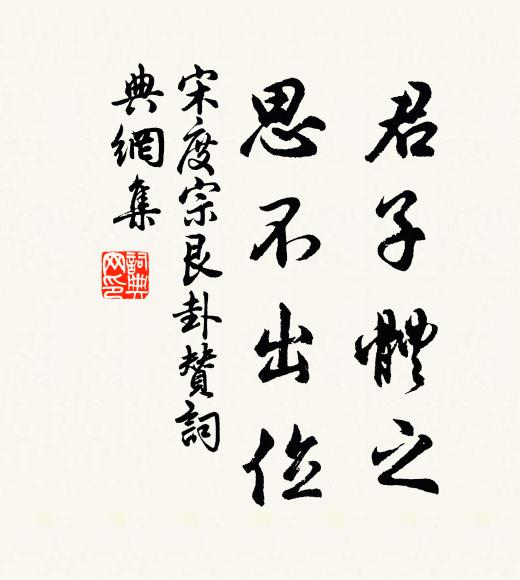 君子體之
思不出位
宋度宗艮卦贊詞
典網集
詞典网印